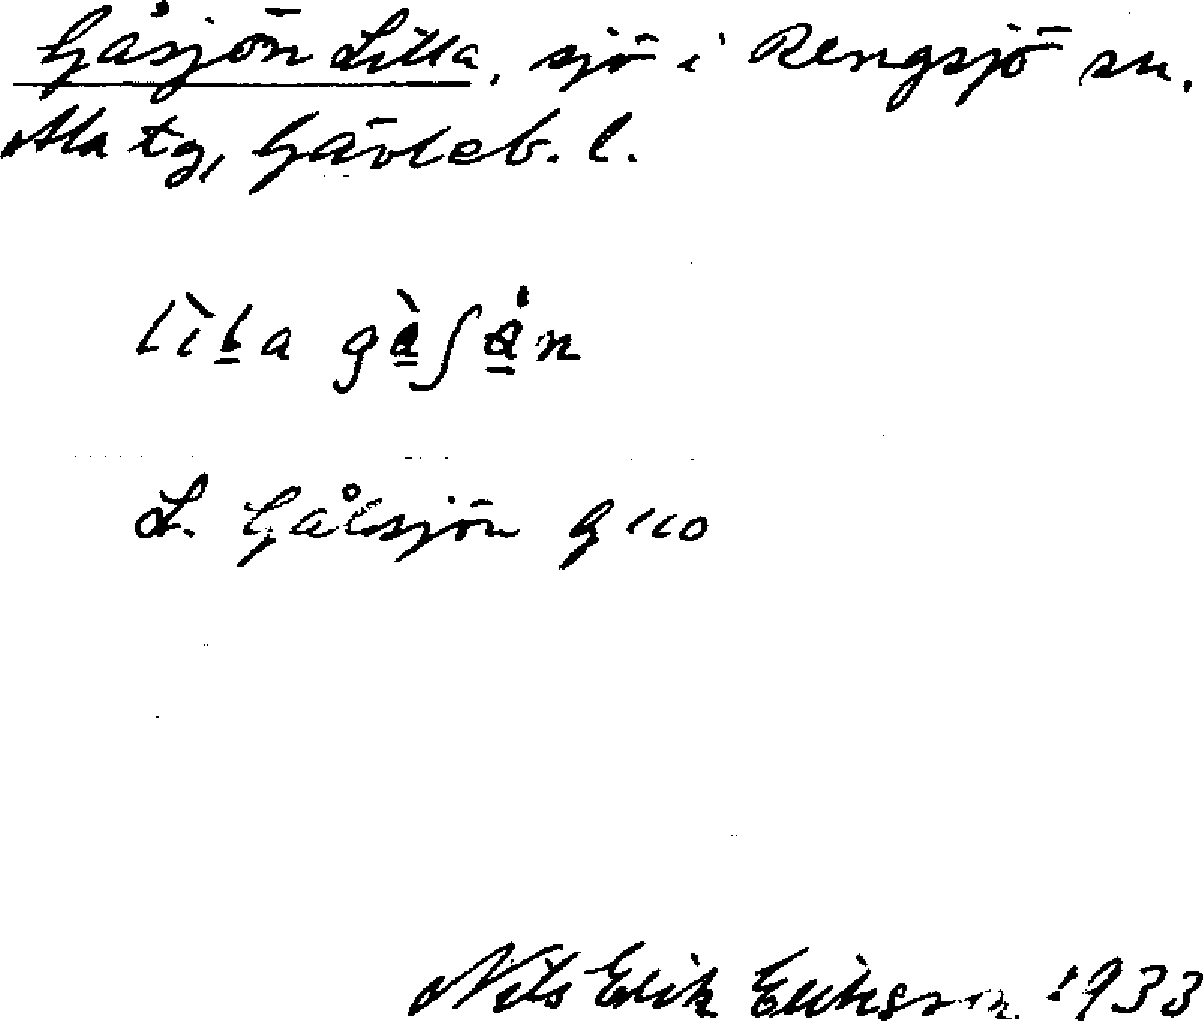 Gåsjön Lilla, sjö i Rengsjö sn.
Ala tg, Gävleb. l.
lìl̠a gà̠ʃå̠n
L. Gålsjön G 110
Nils Erik Eriksson 1933